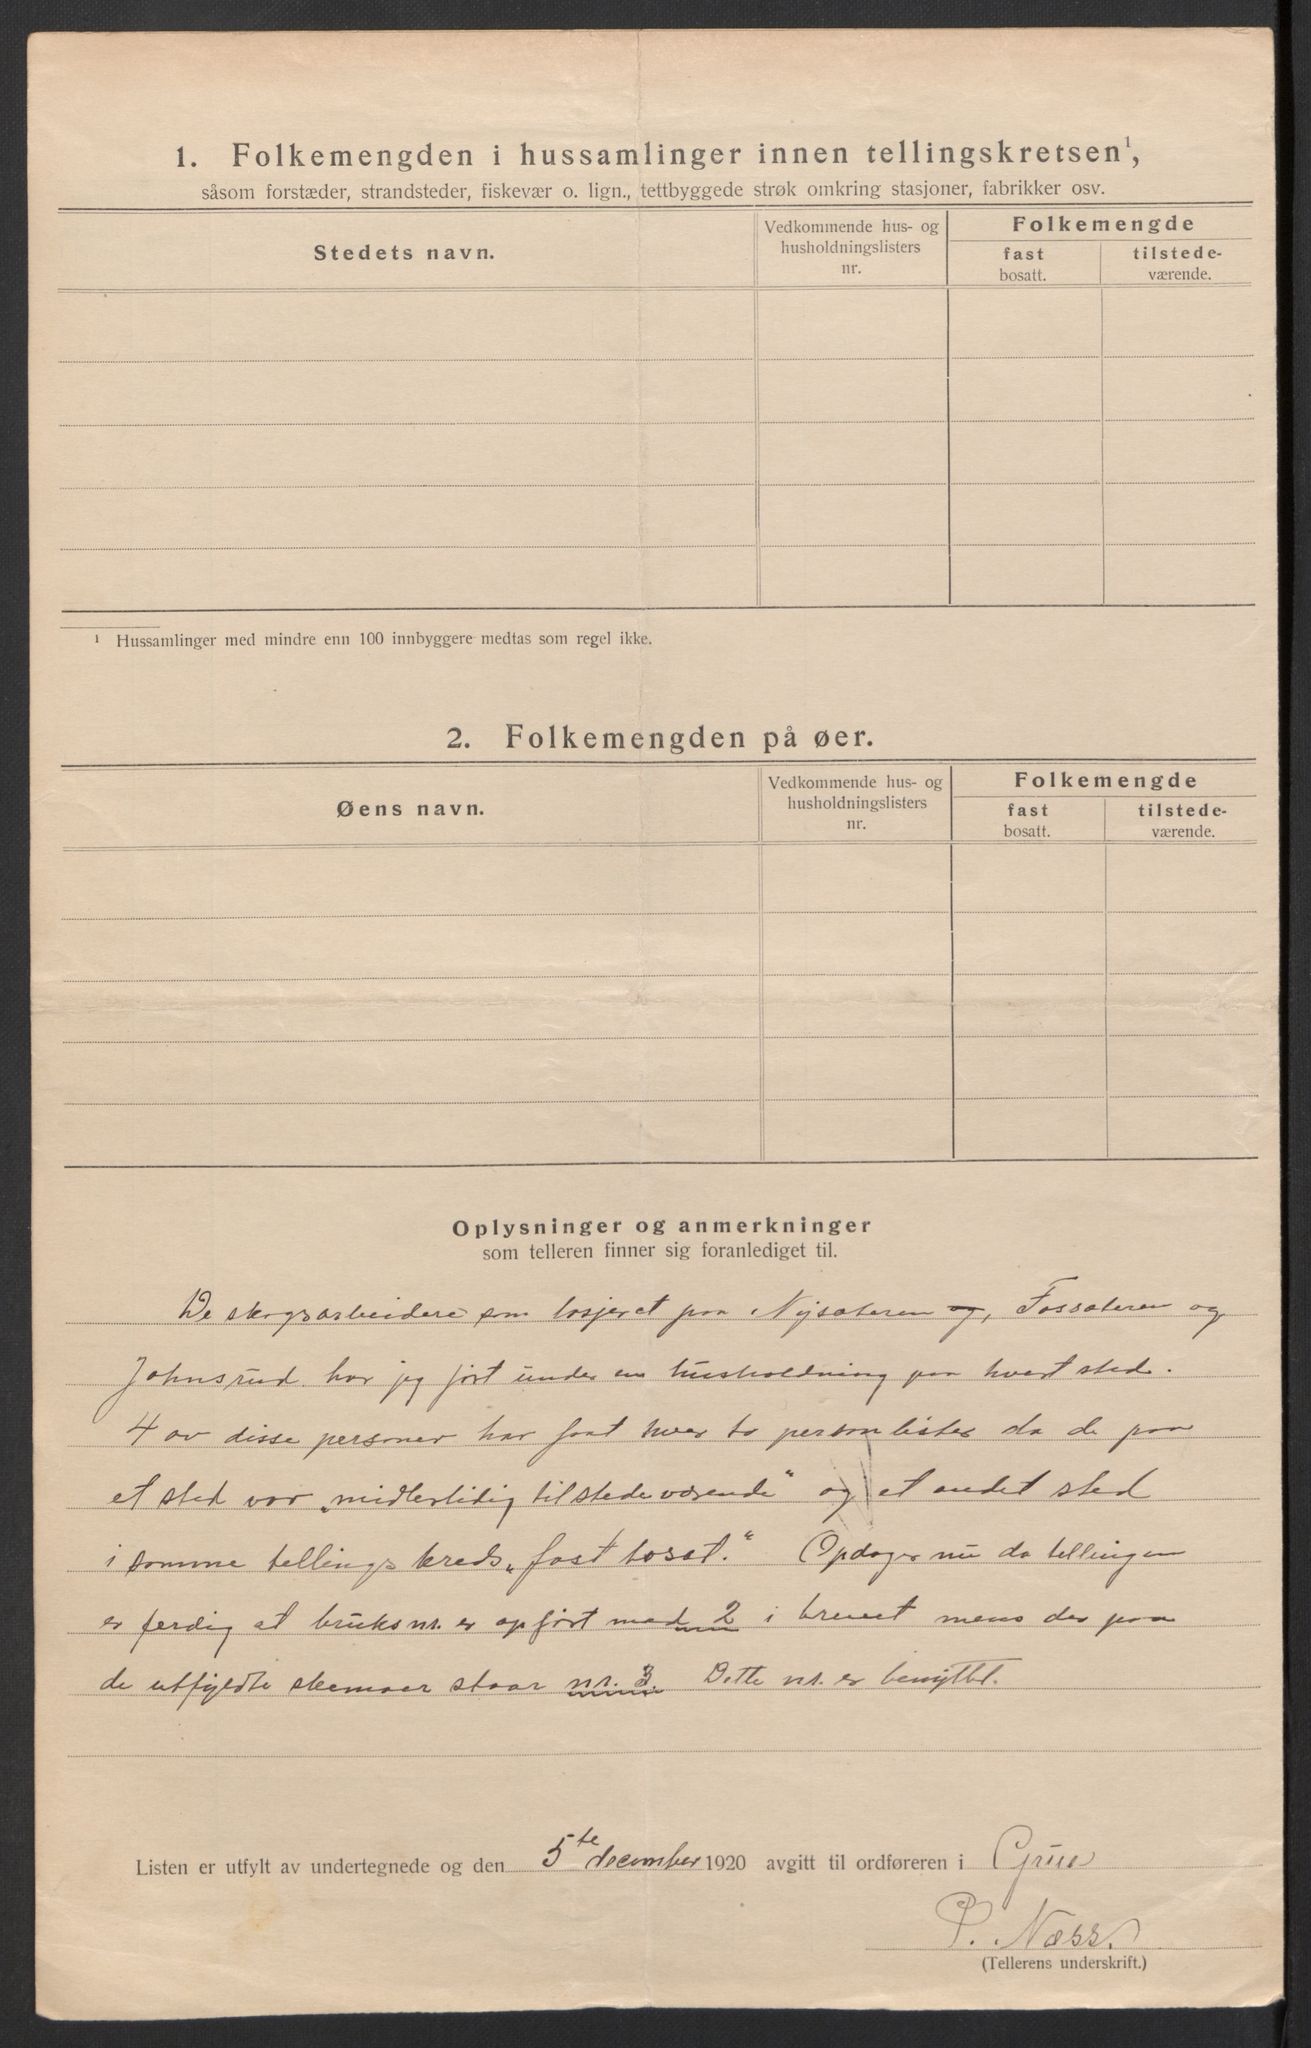 1. Folkemengden i hussamlinger innen tellingskretsen¹,
såsom forstæder, strandsteder, fiskevær o. lign., tettbyggede strøk omkring stasjoner, fabrikker osv.
Stedets navn.
Vedkommende hus- og
husholdningslisters
nr.
Folkemengde
fast
bosatt.
tilstede-
værende.
¹ Hussamlinger med mindre enn 100 innbyggere medtas som regel ikke.
2. Folkemengden på øer.
Øens navn.
Vedkommende hus- og
husholdningslisters
nr.
Folkemengde
fast
bosatt.
tilstede-
værende.
Oplysninger og anmerkninger
som telleren finner sig foranlediget til.
De skogsarbeidere som losjeret paa Nysæteren og, Fossæteren og
Johnsrud har jeg ført under en husholdning paa hvert sted.
4 av disse personer har faat hver to personlister da de paa
et sted var „midlertidig tilstedeværende" og et andet sted
i samme tellingskreds „fast bosat." Opdager nu da tellingen
er ferdig at bruksnr. er opført med 2 i brevet mens der paa
de utfyldte skemaer staar nr. 3. Dette nr. er benyttet.
Listen er utfylt av undertegnede og den 5te december 1920 avgitt til ordføreren i Grue
P. Næss.
(Tellerens underskrift.)